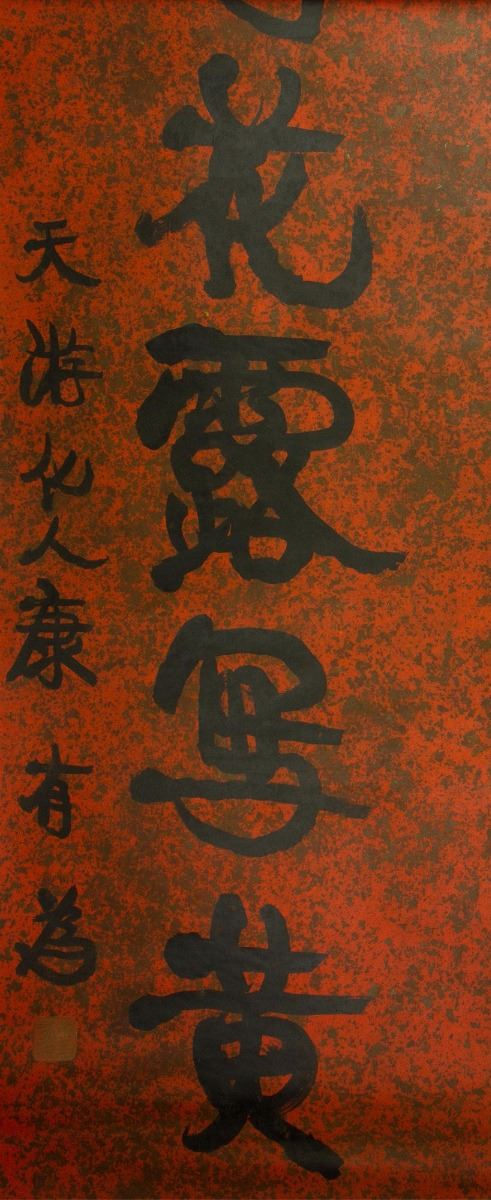 花露写黄
天游化人康有為